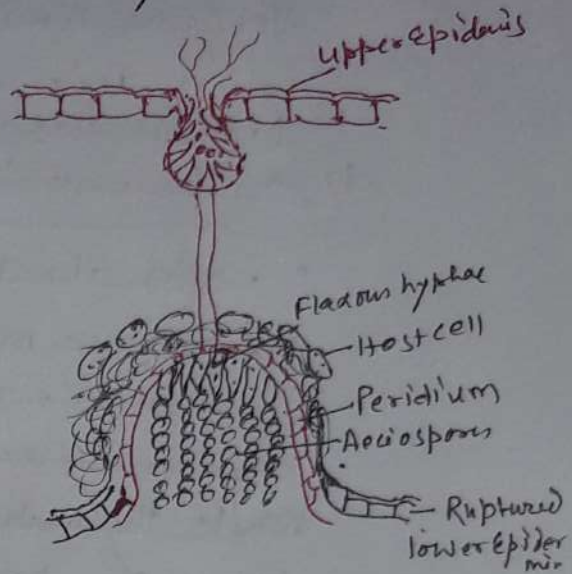 Upper Epidermis
Fladous hyphae
Host cell
Peridium
Aeciospores
Ruptured
lower Epider
mis